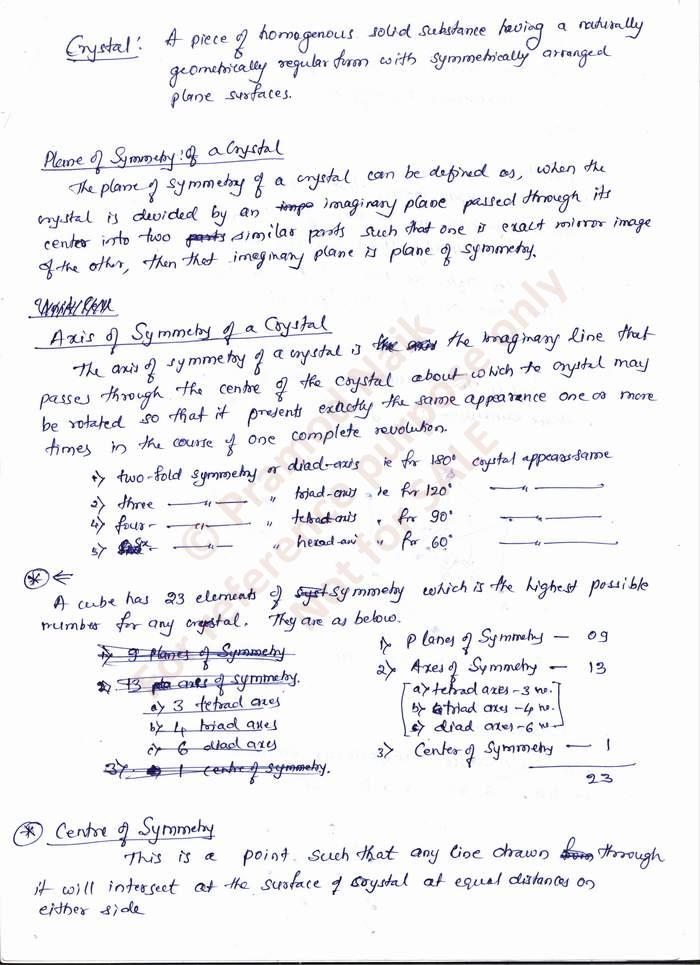 Crystal: A piece of homogenous solid substance having a naturally
geometrically regular form with symmetrically arranged
plane surfaces.
Plane of Symmetry: of a Crystal
The plane of symmetry of a crystal can be defined as, when the
crystal is devided by an imaginary plane passed through its
center into two parts similar parts such that one is exact mirror image
of the other, then that imeginary plane is plane of symmetry.
Axis of Symmetry of a Crystal
The axis of symmetry of a crystal is the axis the imaginary line that
passes through the centre of the crystal about which te crystal may
be rotated so that it presents exactly the same appearence one or more
times in the course of one complete revolution.
1) two-fold symmetry or diad-axis ie for 180° crystal appears same
2) three —〃— 〃 triad-axis ie for 120° —〃—
4) four- —〃— 〃 tetrad axis 〃 for 90° —〃—
5) Six- —〃— 〃 hexad-axi 〃 for 60° —〃—
* ←
A cube has 23 elements of syst symmetry which is the highest possible
number for any crystal. They are as below.
1) 9 planes of Symmetry
2) 13 pla axes of symmetry.
a) 3 tetrad axes
b) 4 triad axes
c) 6 diad axes
3) 1 centre of symmetry.
1) Planes of Symmetry — 09
2) Axes of Symmetry — 13
a) tetrad axes - 3 no.
b) triad axes - 4 no.
c) diad axes - 6 no
3) Center of Symmetry — 1
23
* Centre of Symmetry
This is a point such that any line drawn from through
it will intersect at the surface of crystal at equal distances on
either side
© Pramod Naik
For reference purpose only
Not for SALE